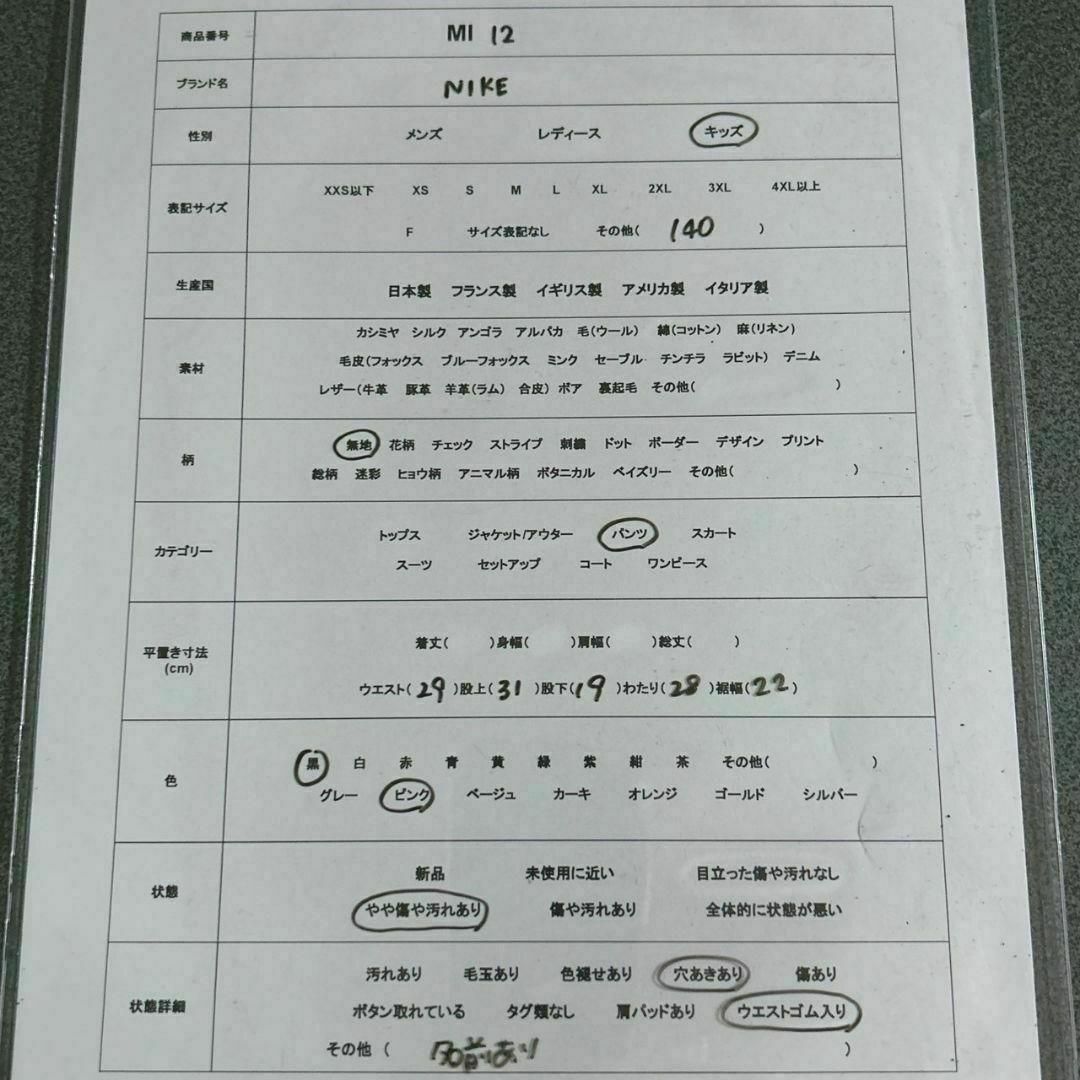 商品番号 MI 12
ブランド名 NIKE
性別 メンズ レディース キッズ
表記サイズ
XXS以下 XS S M L XL 2XL 3XL 4XL以上
F サイズ表記なし その他( 140 )
生産国 日本製 フランス製 イギリス製 アメリカ製 イタリア製
素材
カシミヤ シルク アンゴラ アルパカ 毛(ウール) 綿(コットン) 麻(リネン)
毛皮(フォックス ブルーフォックス ミンク セーブル チンチラ ラビット) デニム
レザー(牛革 豚革 羊革(ラム) 合皮) ボア 裏起毛 その他( )
柄
無地 花柄 チェック ストライプ 刺繍 ドット ボーダー デザイン プリント
総柄 迷彩 ヒョウ柄 アニマル柄 ボタニカル ペイズリー その他( )
カテゴリー
トップス ジャケット/アウター パンツ スカート
スーツ セットアップ コート ワンピース
平置き寸法
(cm)
着丈( )身幅( )肩幅( )総丈( )
ウエスト(29)股上(31)股下(19)わたり(28)裾幅(22)
色
黒 白 赤 青 黄 緑 紫 紺 茶 その他( )
グレー ピンク ベージュ カーキ オレンジ ゴールド シルバー
状態
新品 未使用に近い 目立った傷や汚れなし
やや傷や汚れあり 傷や汚れあり 全体的に状態が悪い
状態詳細
汚れあり 毛玉あり 色褪せあり 穴あきあり 傷あり
ボタン取れている タグ類なし 肩パッドあり ウエストゴム入り
その他 ( 名前あり )